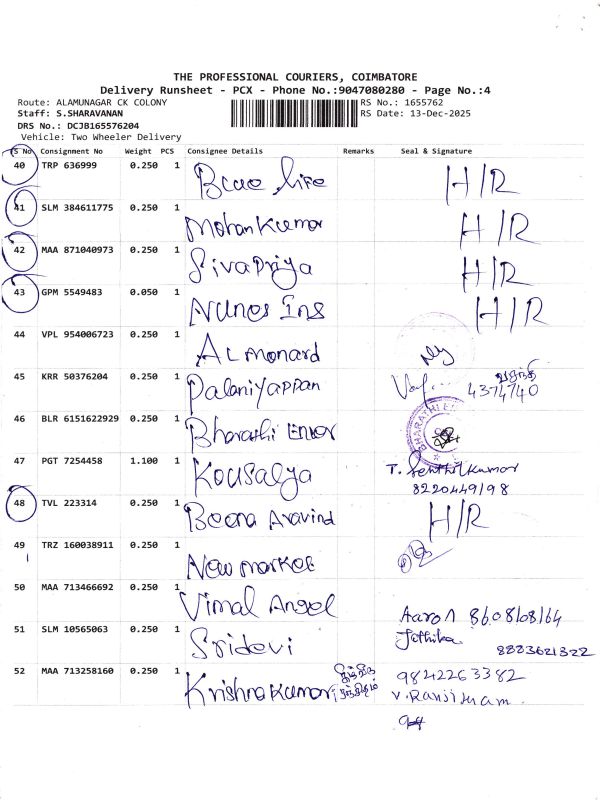 THE PROFESSIONAL COURIERS, COIMBATORE
Delivery Runsheet - PCX - Phone No.:9047080280 - Page No.:4
Route: ALAMUNAGAR CK COLONY RS No.: 1655762
Staff: S.SHARAVANAN RS Date: 13-Dec-2025
DRS No.: DCJB165576204
Vehicle: Two Wheeler Delivery
S No Consignment No Weight PCS Consignee Details Remarks Seal & Signature
40 TRP 636999 0.250 1 life H/R
41 SLM 384611775 0.250 1 Mohan Kumar H/R
42 MAA 871040973 0.250 1 Sivapriya H/R
43 GPM 5549483 0.050 1 Ins H/R
44 VPL 954006723 0.250 1 Almonard
45 KRR 50376204 0.250 1 Palaniyappan வசந்தி
4374740
46 BLR 6151622929 0.250 1 Bharathi BHARATHI
47 PGT 7254458 1.100 1 Kousalya T. Senthilkumar
8220449198
48 TVL 223314 0.250 1 Beena Aravind H/R
49 TRZ 160038911 0.250 1 New market
50 MAA 713466692 0.250 1 Vimal Angel Aaron 8608108164
51 SLM 10565063 0.250 1 Sridevi Jothika
8883621322
52 MAA 713258160 0.250 1 Krishnakumar 9842263382
V. Ranjitham